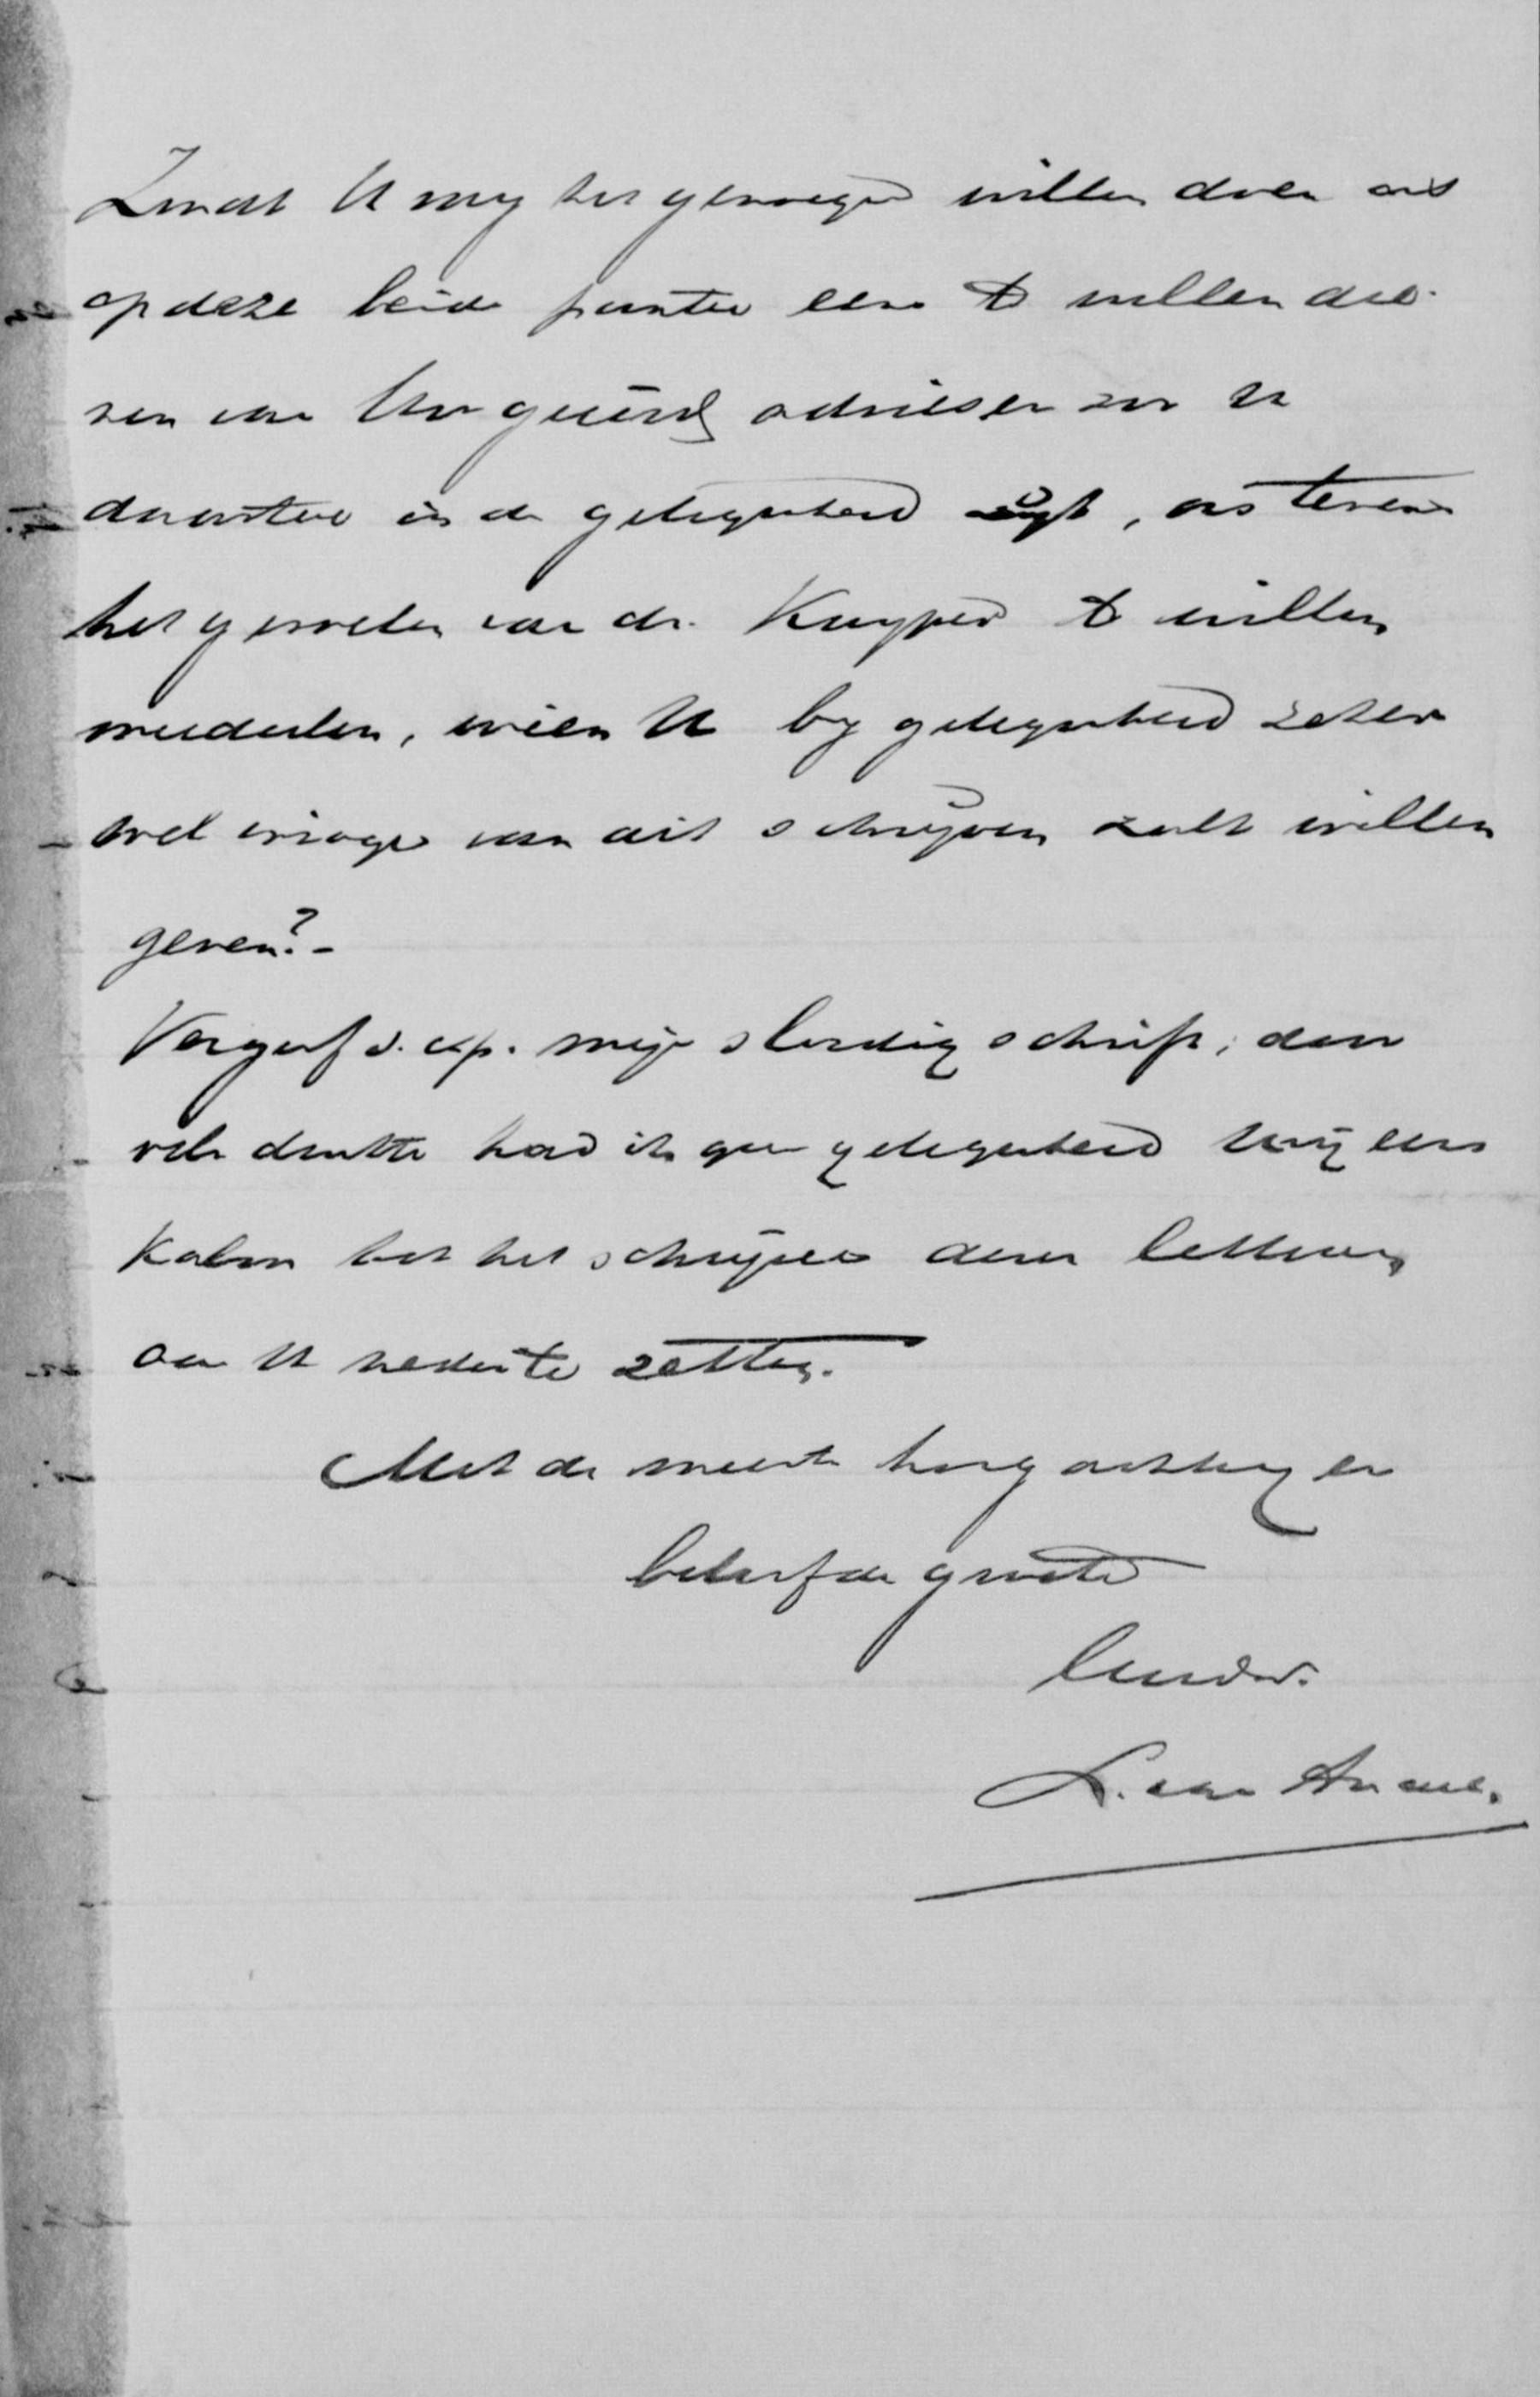 Zoudt U mij het genoegen willen doen ons
op deze beide punten eens te willen die-
nen van Uw geëerd advies en zoo U
daartoe in de gelegenheid zijt, ons tevens
het gevoelen van dr. Kuyper te willen
mededeelen, wien U bij gelegenheid zeker
wel inzage van dit schrijven zult willen
geven? -
Vergeef s.v.p. mijn slordig schrift; door
vele drukte had ik geen gelegenheid mij eens
kalm tot het schrijven dezer letteren
aan U neder te zetten.
Met de meeste hoogachting en
beleefde groete
Uw dw.
L. van